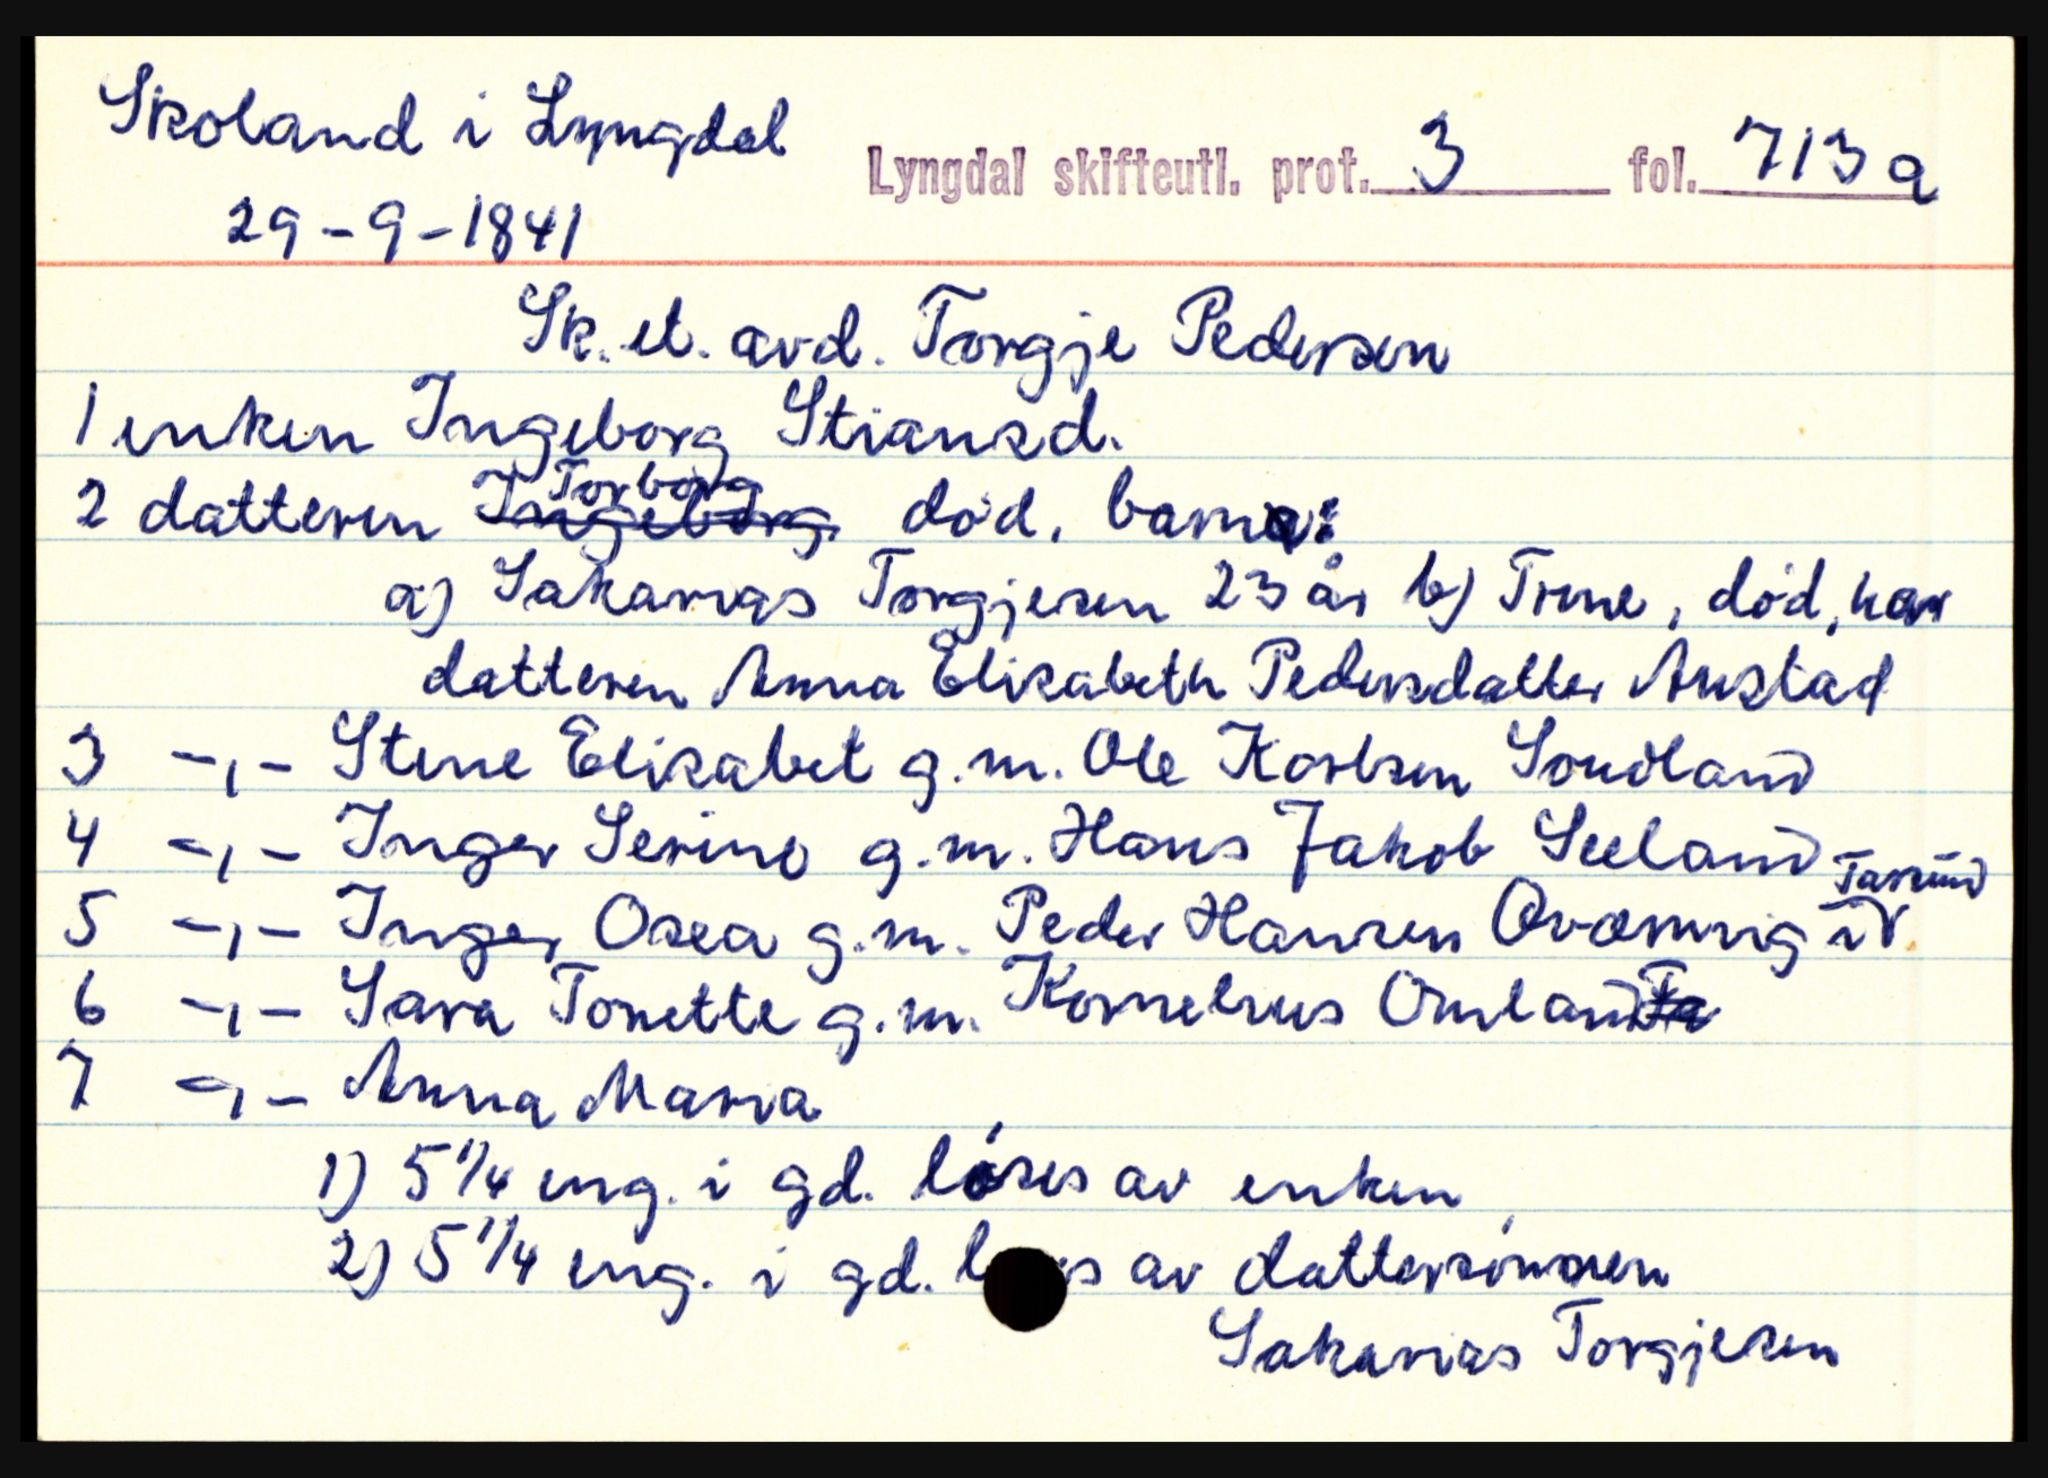 Skoland i Lyngdal
Lyngdal skifteutl. prot. 3 fol. 713a
29-9-1841
Sk. et. avd. Torgje Pedersen
1 enken Ingeborg Stiansd.
Torborg
2 datteren Ingeborg død, barna:
a) Sakarias Torgjesen 23 år b) Trine, død, har
datteren Anna Elisabeth Pedersdatter Austad
3 -,- Stine Elisabet g.m. Ole Karlsen Soudland
4 -,- Inger Serine g.m. Hans Jakob Seeland
5 -,- Inger Osea g.m. Peder Hansen i
6 -,- Sara Tonette g.m. Kornelius Omland
7 -,- Anna Maria
1) 5 1/4 eng. i gd. løses av enken
2) 5 1/4 eng. i gd. av dattersønnen
Sakarias Torgjesen